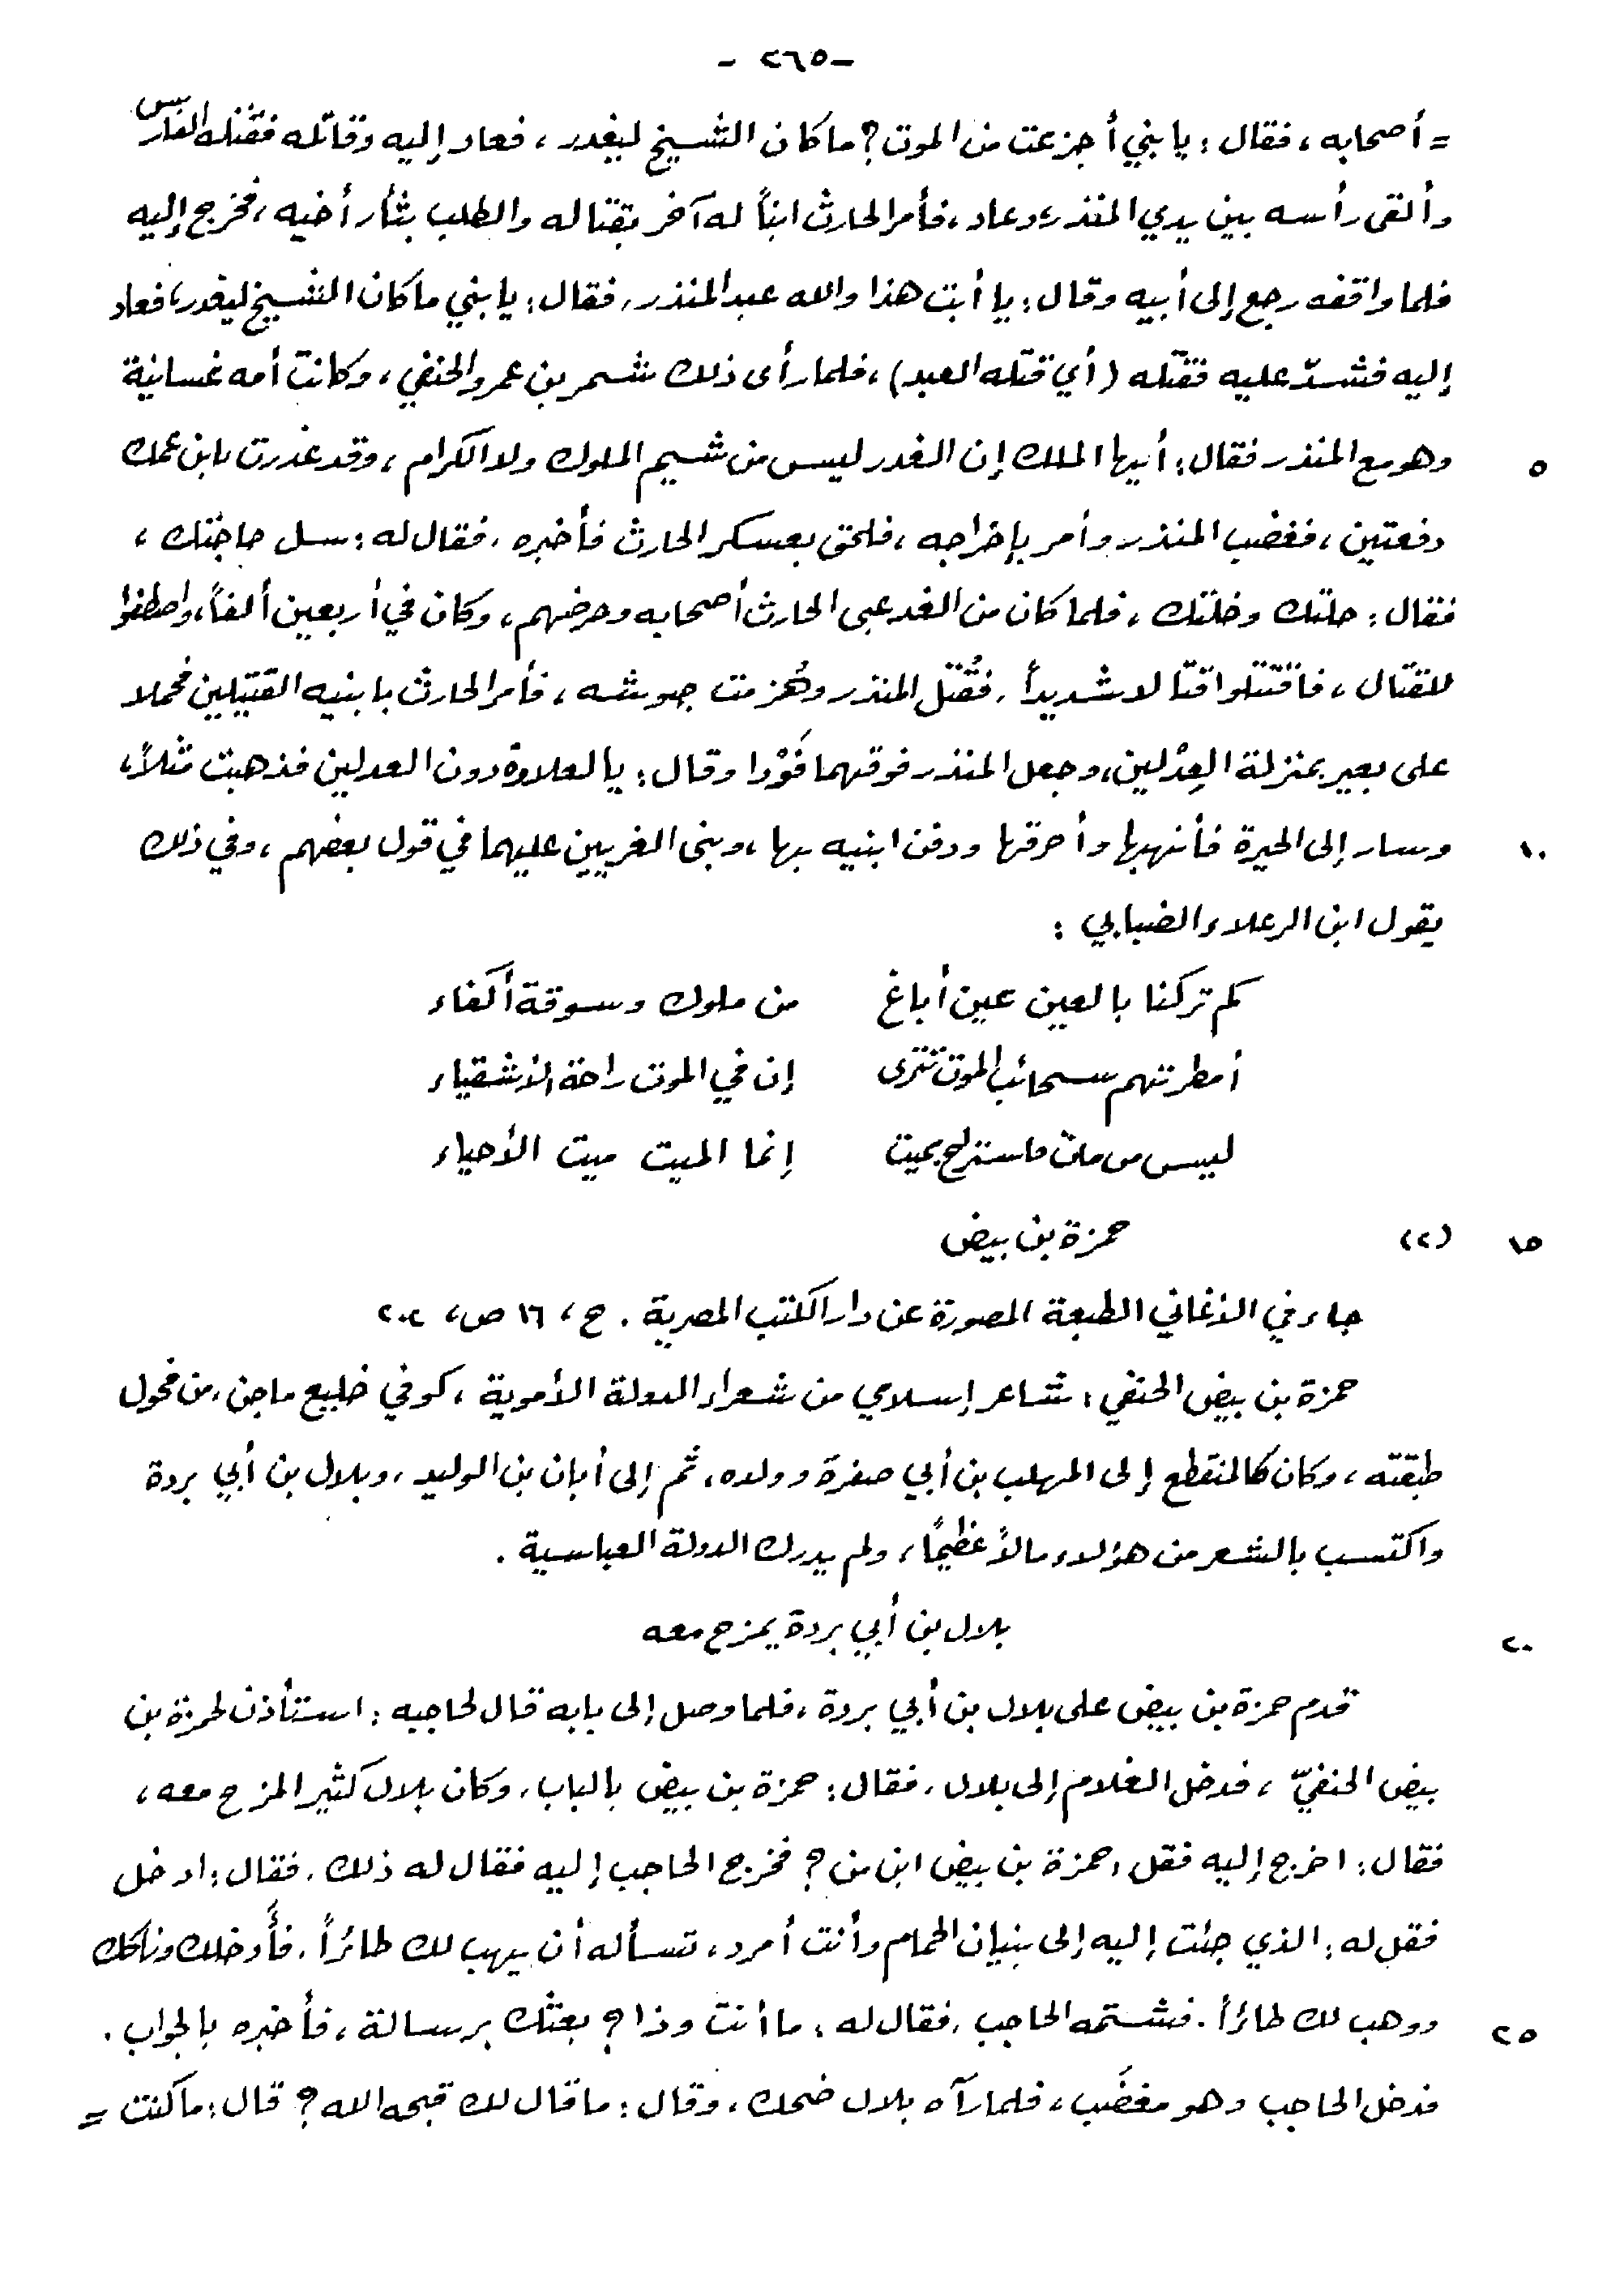 - ٢٦٥ -
= أصحابه، فقال: يا بني أجزعت من الموت؟ ما كان الشيخ ليغدر، فعاد إليه وقاتله فقتله الفارس
وألقى رأسه بين يدي المنذر، وعاد، فأمر الحارث ابناً له آخر بقتاله والطلب بثأر أخيه، فخرج إليه
فلما واقفه رجع إلى أبيه وقال: يا أبت هذا والله عبد المنذر، فقال: يا بني ما كان الشيخ ليغدر، فعاد
إليه فشدّ عليه فقتله (أي قتله العبد)، فلما رأى ذلك شمر بن عمرو الحنفي، وكانت أمه غسانية
٥ وهو مع المنذر فقال: أيها الملك إن الغدر ليس من شيم الملوك ولا الكرام، وقد غدرت بابن عمك
دفعتين، فغضب المنذر وأمر بإخراجه، فلحق بعسكر الحارث فأخبره، فقال له: سل حاجتك،
فقال: حلتك وخلتك، فلما كان من الغد عبى الحارث أصحابه وحرضهم، وكان في أربعين ألفاً، واصطفوا
للقتال، فاقتتلوا قتالا شديداً، فقُتل المنذر وهُزمت جيوشه، فأمر الحارث بابنيه القتيلين فحملا
على بعير بمنزلة العِدْلين، وجعل المنذر فوقهما فَوْدا وقال: يا لعلاوة دون العدلين فذهبت مثلاً،
١٠ وسار إلى الحيرة فأنهبها وأحرقها ودفن ابنيه بها، وبنى الغريين عليهما في قول بعضهم، وفي ذلك
يقول ابن الرعلاء الضبابي:
كم تركنا بالعين عين أباغ من ملوك وسوقة أكفاء
أمطرتهم سحائب الموت تترى إن في الموت راحة الأشقياء
ليس من مات فاستراح بميت إنما الميت ميت الأحياء
١٥ (٢) حمزة بن بيض
جاء في الأغاني الطبعة المصورة عن دار الكتب المصرية. ج، ١٦ ص، ٢٠٢
حمزة بن بيض الحنفي: شاعر إسلامي من شعراء الدولة الأموية، كوفي خليع ماجن، من فحول
طبقته، وكان كالمنقطع إلى المهلب بن أبي صفرة وولده، ثم إلى أبان بن الوليد، وبلال بن أبي بردة
واكتسب بالشعر من هؤلاء مالاً عظيمًا، ولم يدرك الدولة العباسية.
٢٠ بلال بن أبي بردة يمزح معه
قدم حمزة بن بيض على بلال بن أبي بردة، فلما وصل إلى بابه قال لحاجبه: استأذن لحمزة بن
بيض الحنفيّ، فدخل الغلام إلى بلال، فقال: حمزة بن بيض بالباب، وكان بلال كثير المزح معه،
فقال: اخرج إليه فقل: حمزة بن بيض ابن من؟ فخرج الحاجب إليه فقال له ذلك، فقال: ادخل
فقل له: الذي جئت إليه إلى بنيان الحمام وأنت أمرد، تسأله أن يهب لك طائراً، فأدخلك وناكك
٢٥ ووهب لك طائراً. فشتمه الحاجب، فقال له: ما أنت وذا؟ بعثك برسالة، فأخبره بالجواب.
فدخل الحاجب وهو مغضَب، فلما رآه بلال ضحك، وقال: ما قال لك قبحه الله؟ قال: ما كنت =